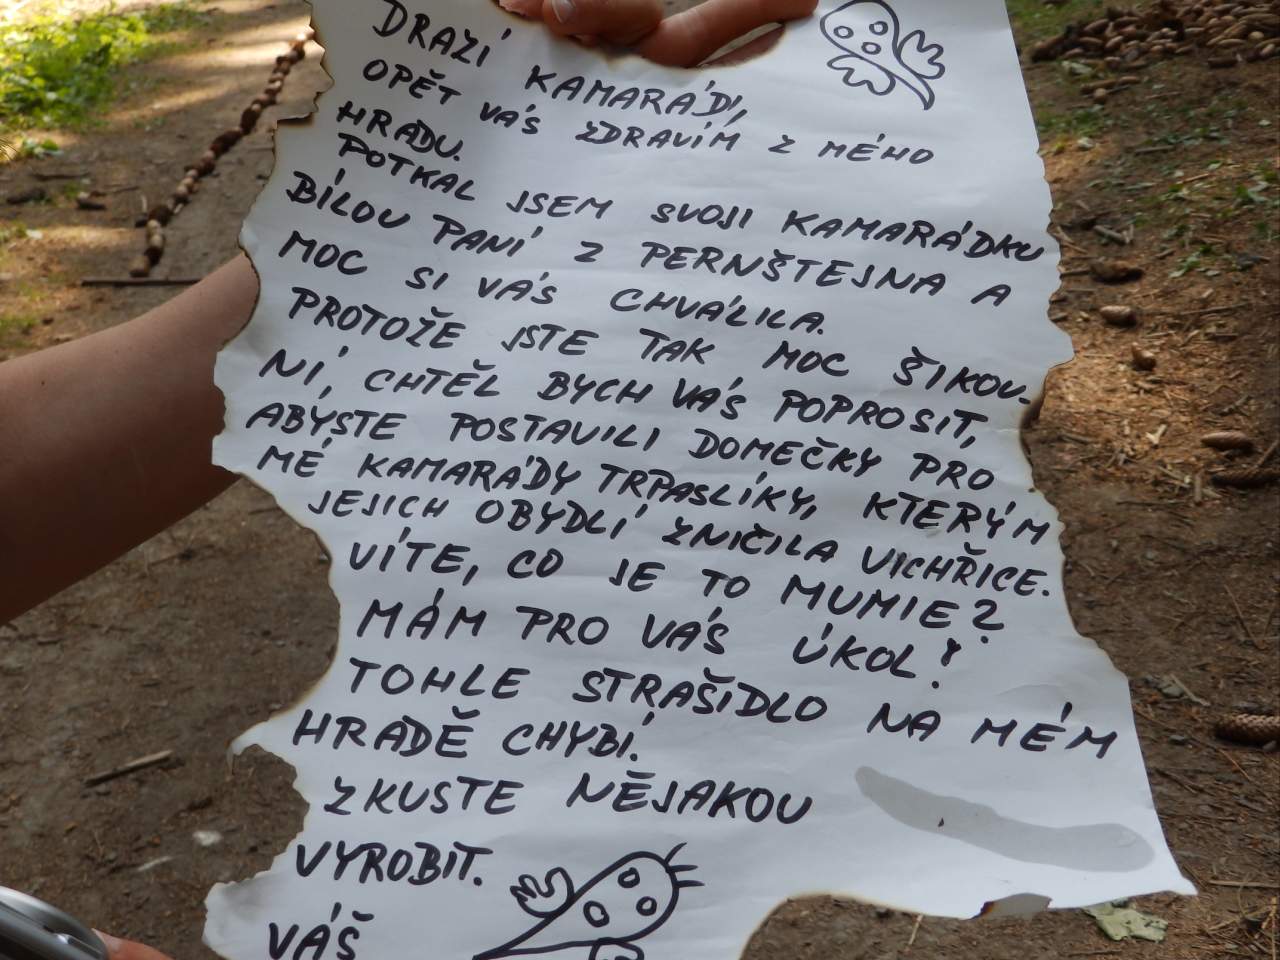 DRAZÍ KAMARÁDI,
OPĚT VÁS ZDRAVÍM Z MÉHO
HRADU.
POTKAL JSEM SVOJI KAMARÁDKU
BÍLOU PANÍ Z PERNŠTEJNA A
MOC SI VÁS CHVÁLILA.
PROTOŽE JSTE TAK MOC ŠIKOV-
NÍ, CHTĚL BYCH VÁS POPROSIT,
ABYSTE POSTAVILI DOMEČKY PRO
MÉ KAMARÁDY TRPASLÍKY, KTERÝM
JEJICH OBYDLÍ ZNIČILA VICHŘICE.
VÍTE, CO JE TO MUMIE?
MÁM PRO VÁS ÚKOL!
TOHLE STRAŠIDLO NA MÉM
HRADĚ CHYBÍ.
ZKUSTE NĚJAKOU
VYROBIT.
VÁŠ